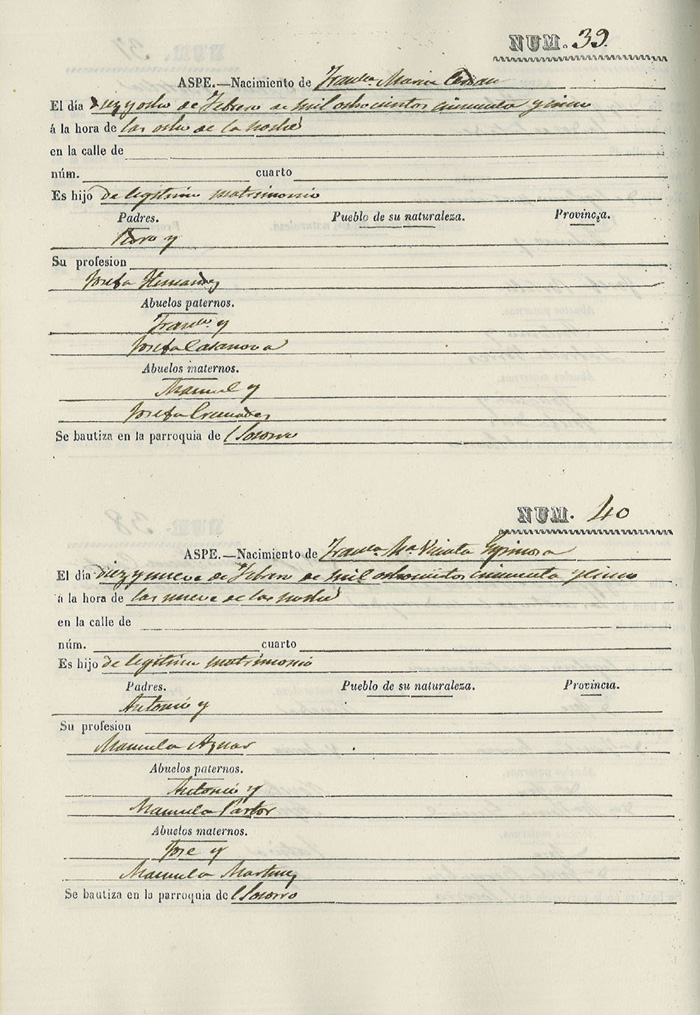 NUM. 39.
ASPE.—Nacimiento de Franca. Maria
El día diez y ocho de Febrero de mil ochocientos cincuenta y cinco
á la hora de las ocho de la noche
en la calle de
núm. cuarto
Es hijo de legitimo matrimonio
Padres. Pueblo de su naturaleza. Provincia.
y
Su profesion
Josefa Hernandez
Abuelos paternos.
Franco. y
Josefa Casanova
Abuelos maternos.
Manuel y
Josefa Cremades
Se bautiza en la parroquia de l Socorro
NUM. 40
ASPE.—Nacimiento de Franca. Ma. Vicenta Espinosa
El día diez y nueve de Febrero de mil ochocientos cincuenta y cinco
á la hora de las nueve de la noche
en la calle de
núm. cuarto
Es hijo de legitimo matrimonio
Padres. Pueblo de su naturaleza. Provincia.
Antonio y
Su profesion
Manuela Aznar
Abuelos paternos.
Antonio y
Manuela Pastor
Abuelos maternos.
Jose y
Manuela Martinez
Se bautiza en la parroquia de l Socorro